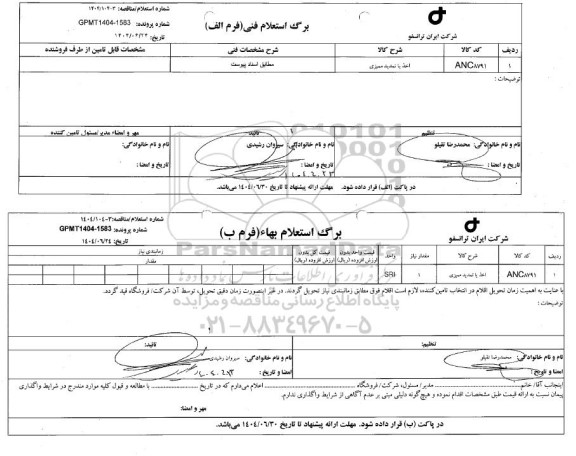 شماره استعلام/مناقصه: ۱۴۰۴/۱۰۴۰۳
برگ استعلام فنی(فرم الف)
شماره پرونده: GPMT1404-1583
شرکت ایران ترانسفو
تاریخ: ۱۴۰۴/۰۶/۲۴
ردیف
کد کالا
شرح کالا
شرح مشخصات فنی
مشخصات قابل تامین از طرف فروشنده
۱
ANC۸۷۹۱
اخذ یا تمدید ممیزی
مطابق اسناد پیوست
توضیحات :
تنظیم
تائید
مهر و امضاء مدیر/مسئول تامین کننده
نام و نام خانوادگی: محمدرضا تقیلو
نام و نام خانوادگی: سیروان رشیدی
نام و نام خانوادگی:
تاریخ و امضا :
تاریخ و امضا :
تاریخ و امضا :
در پاکت (الف) قرار داده شود. مهلت ارائه پیشنهاد تا تاریخ ۱۴۰۴/۰۶/۳۰ می‌باشد.
شماره استعلام/مناقصه: ۱۴۰۴/۱۰۴۰۳
برگ استعلام بهاء(فرم ب)
شماره پرونده: GPMT1404-1583
شرکت ایران ترانسفو
تاریخ: ۱۴۰۴/۰۶/۲۴
ردیف
کد کالا
شرح کالا
مقدار نیاز
واحد
قیمت واحد بدون ارزش افزوده (ریال)
قیمت کل بدون ارزش افزوده (ریال)
زمانبندی نیاز
مقدار
۱
ANC۸۷۹۱
اخذ یا تمدید ممیزی
۱
SRI
ParsNamadData
پایگاه اطلاع رسانی مناقصه ومزایده
۰۲۱-۸۸۳۴۹۶۷۰-۵
با عنایت به اهمیت زمان تحویل اقلام در انتخاب تامین‌کننده، لازم است اقلام فوق مطابق زمانبندی نیاز تحویل گردند. در غیر اینصورت زمان دقیق تحویل، توسط آن شرکت/ فروشگاه قید گردد.
توضیحات:
تنظیم:
تائید:
نام و نام خانوادگی: محمدرضا تقیلو
نام و نام خانوادگی: سیروان رشیدی
امضا و تاریخ :
امضا و تاریخ :
اینجانب آقا/ خانم مدیر/ مسئول، شرکت/ فروشگاه اعلام می‌دارم که در تاریخ با مطالعه و قبول کلیه موارد مندرج در شرایط واگذاری
پیمان نسبت به ارائه قیمت طبق مشخصات اقدام نموده و هیچگونه دلیلی مبنی بر عدم آگاهی از شرایط واگذاری ندارم.
مهر و امضاء:
در پاکت (ب) قرار داده شود. مهلت ارائه پیشنهاد تا تاریخ ۱۴۰۴/۰۶/۳۰ می‌باشد.